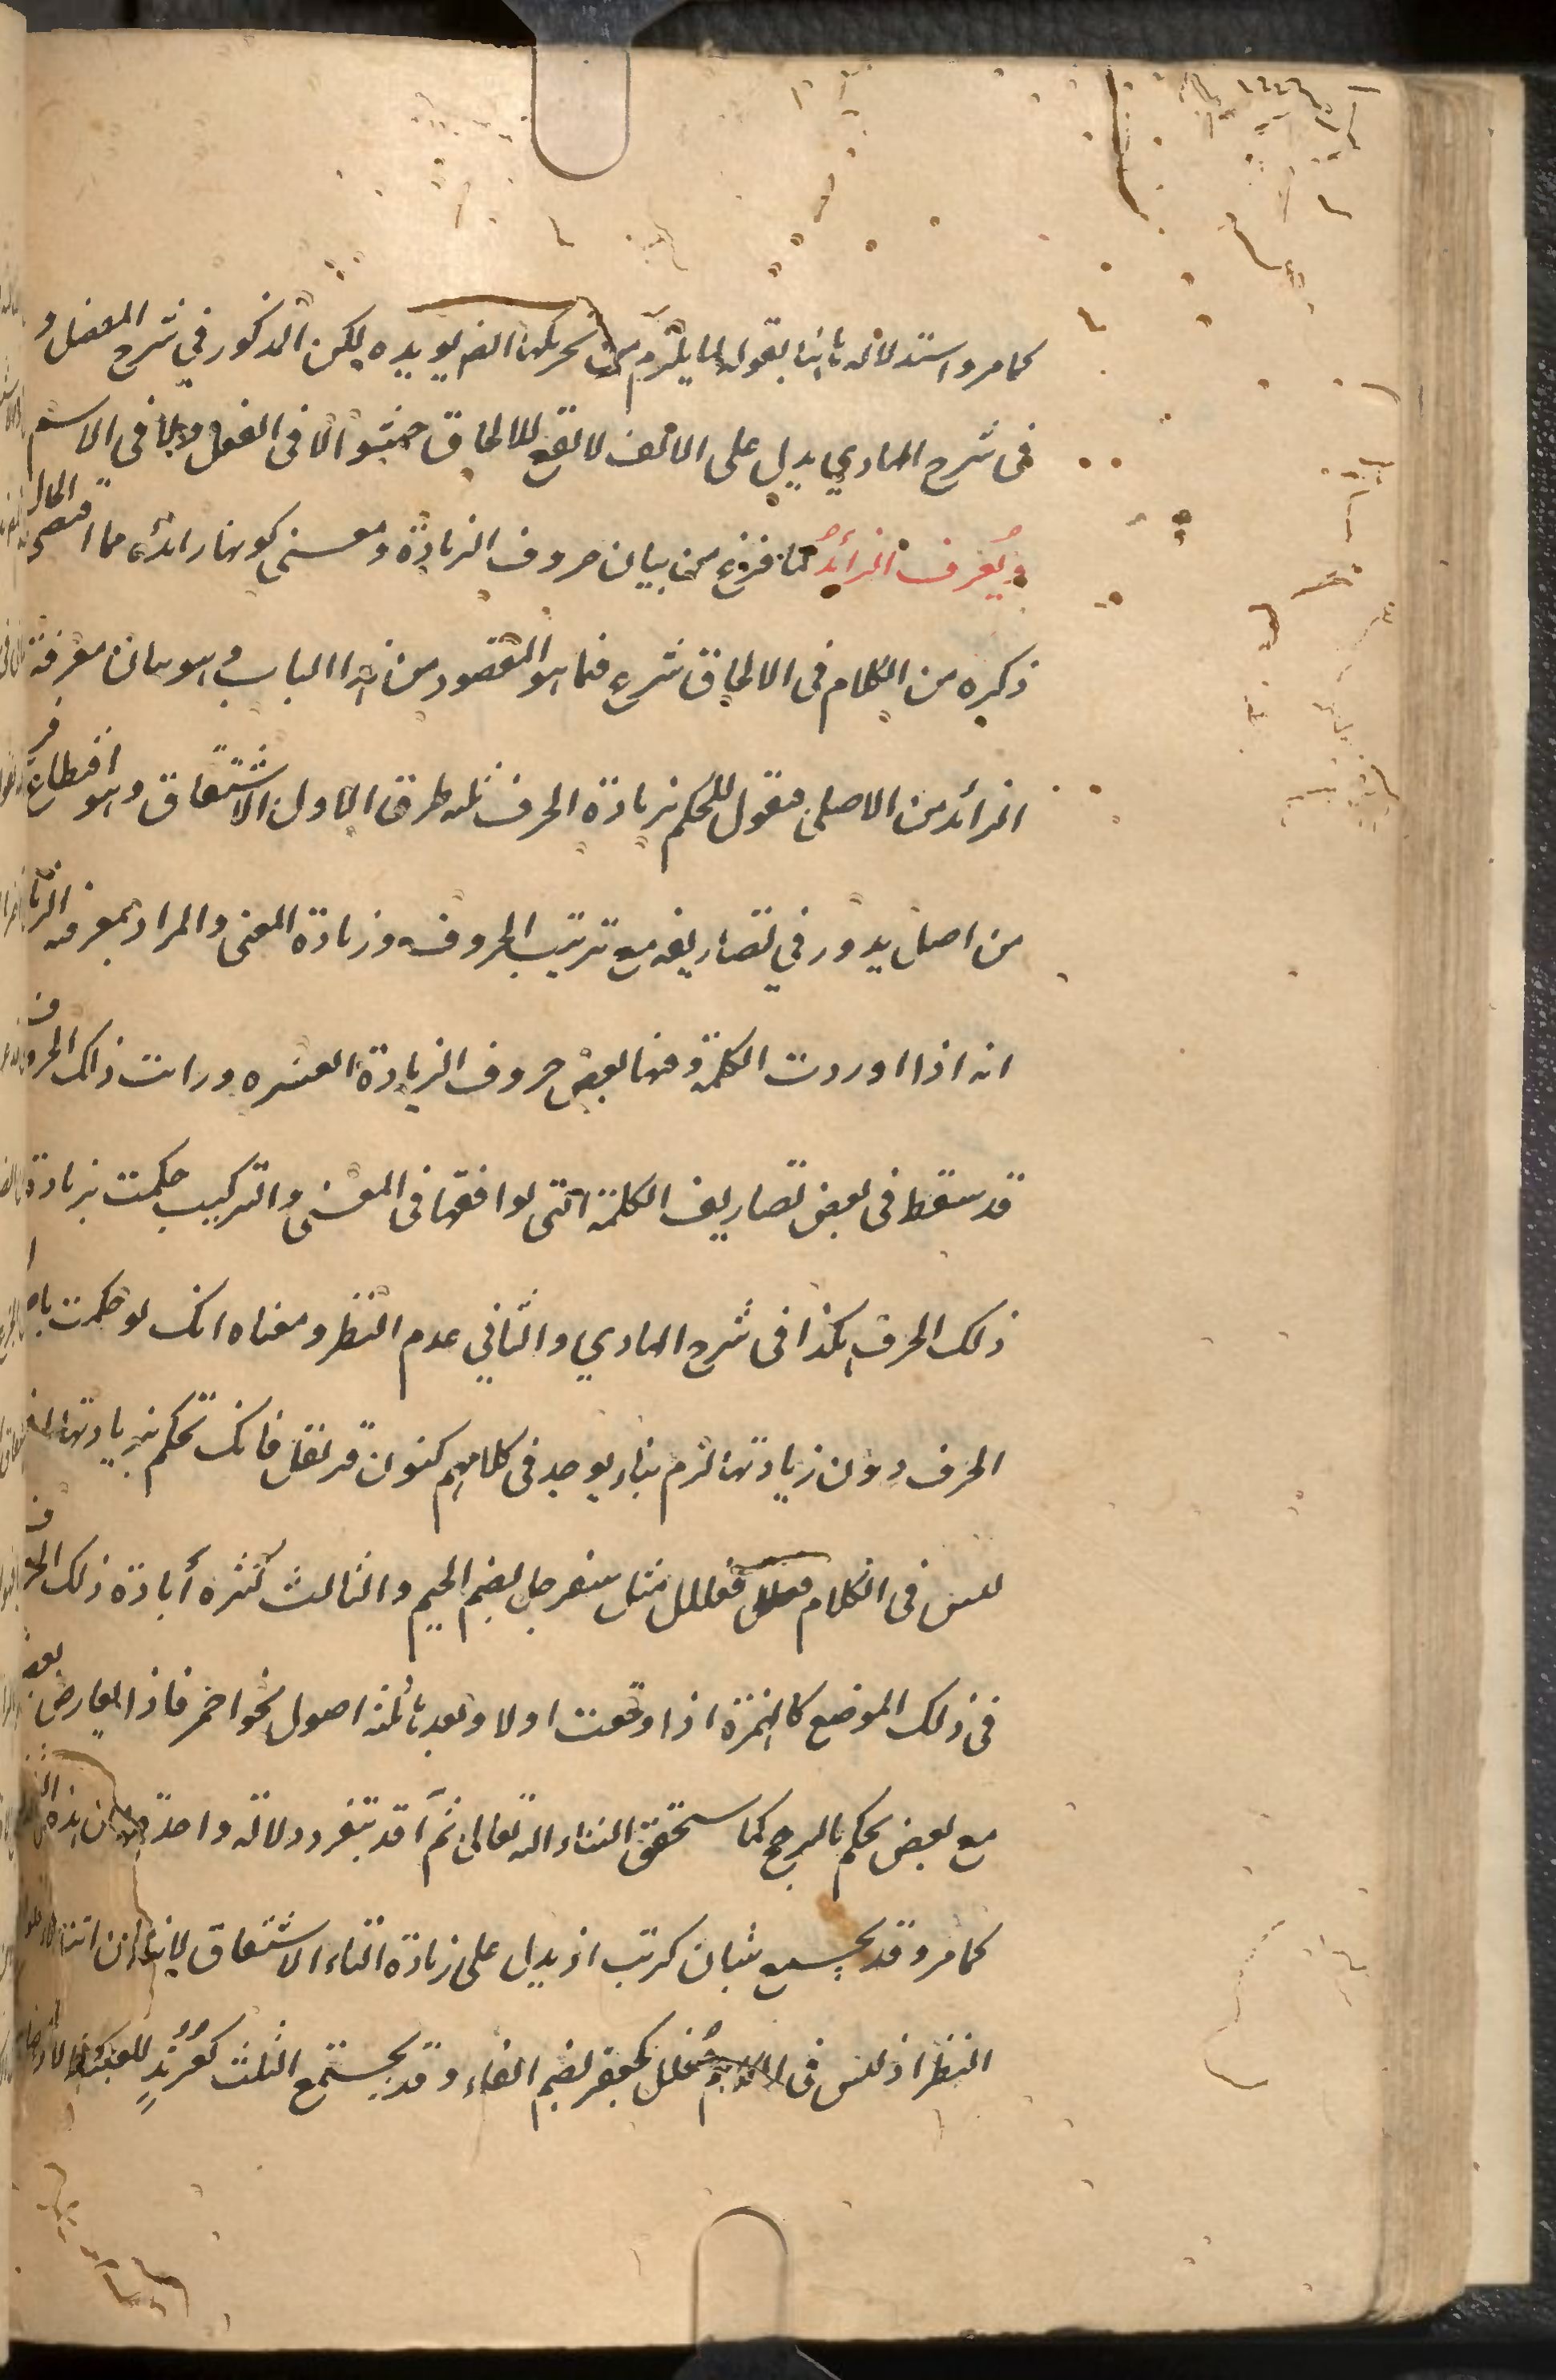 كما مر واستدلاله ثانيا بقوله لما يلزم من تحريكها الخ يؤيده لكن المذكور في شرح المفصل و
في شرح الهادي يدل على الالف لا تقع للالحاق حشوا لا في الفعل ولا في الاسم
ويُعرف الزائدُ لما فرغ من بيان حروف الزيادة ومعنى كونها زائدة مما اقتضى الحال
ذكره من الكلام في الالحاق شرع فيما هو المقصود من هذا الباب وهو بيان معرفة
الزائد من الاصلي فنقول للحكم بزيادة الحرف ثلثه طرق الاول الاشتقاق وهو اقتطاع فرع
من اصل يدور في تصاريفه مع ترتيب الحروف وزيادة المعنى والمراد بمعرفه الزيادة
انه اذا اوردت الكلمة وفيها بعض حروف الزيادة العشره ورايت ذلك الحرف
قد سقط في بعض تصاريف الكلمة التي توافقها في المعنى والتركيب حكمت بزيادة
ذلك الحرف هكذا في شرح الهادي والثاني عدم النظر ومعناه انك لو حكمت باصالة
الحرف دون زيادته لزم بناء يوجد في كلامهم كنون قرنفل فانك تحكم بزيادتها اذ
ليس في الكلام فعللل مثل سفرجل بضم الجيم والثالث كثرة زيادة ذلك الحرف
في ذلك الموضع كالهمزة اذا وقعت اولا وبعدها ثلثة اصول نحو احمر فاذا تعارض بعض
مع بعض يحكم بالترجيح كما ستحقق ان شاء الله تعالى ثم قد ينفرد دلالة واحدة من هذه الثلثة
كما مر وقد يجتمع شيئان كرتب اذ يدل على زيادة التاء الاشتقاق لانه من
النظر اذ ليس في الكلام فعلل كجعفر بضم الفاء وقد يجتمع الثلث كعُرُندٍ للغليظ